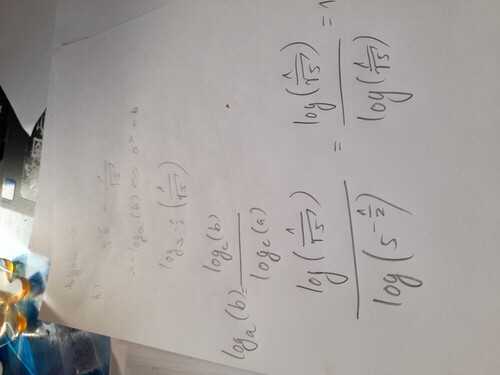 h)
log_a(b) ⇔ a^x = b
log_{5^{-1/2}}(1/√5)
log_a(b) = log_c(b) / log_c(a)
log(1/√5) / log(5^{-1/2}) = log(1/√5) / log(1/√5) = 1